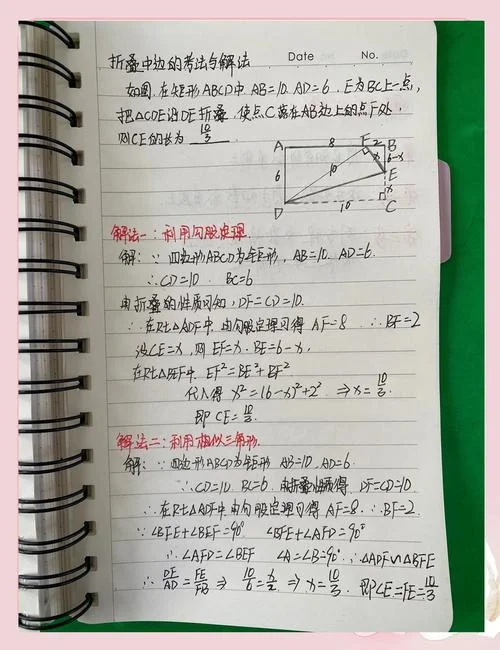 折叠中边的考法与解法
Date No.
如图,在矩形ABCD中 AB=10. AD=6. E为BC上一点,
把△CDE沿DE折叠,使点C落在AB边上的点F处,
则CE的长为 10/3
A 8 F 2 B
6 10 x 6-x
E
x
D 10 C
解法一:利用勾股定理
解:∵四边形ABCD为矩形,AB=10. AD=6.
∴CD=10 BC=6
由折叠的性质可知,DF=CD=10.
∴在Rt△ADF中.由勾股定理可得 AF=8 ∴BF=2
设CE=x,则 EF=x. BE=6-x,
在Rt△BEF中. EF²=BE²+BF²
代入得 x²=(6-x)²+2² ⇒x=10/3
即CE=10/3.
解法二:利用相似三角形.
解:∵四边形ABCD为矩形 AB=10. AD=6.
∴CD=10. BC=6. 由折叠性质得. DF=CD=10
∴在Rt△ADF中,由勾股定理可得 AF=8. ∴BF=2.
∵∠BFE+∠BEF=90° ∠BFE+∠AFD=90°
∴∠AFD=∠BEF ∠A=∠B=90° ∴△ADF∽△BFE
∴ DF/AD=FE/FB ⇒ 10/6=x/2 ⇒ x=10/3 即CE=FE=10/3